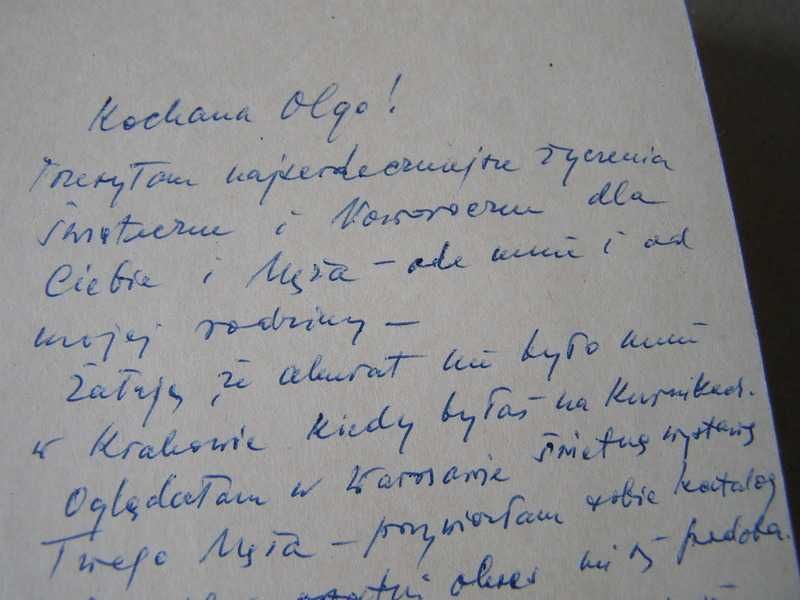 Kochana Olgo!
Przesyłam najserdeczniejsze życzenia
Świąteczne i Noworoczne dla
Ciebie i Męża – ode mnie i od
mojej rodziny –
Żałuję, że akurat nie było mnie
w Krakowie kiedy byłaś na
Oglądałam w Warszawie świetną wystawę
Twego Męża – przywiozłam sobie katalog
ostatni okres mi się podoba.